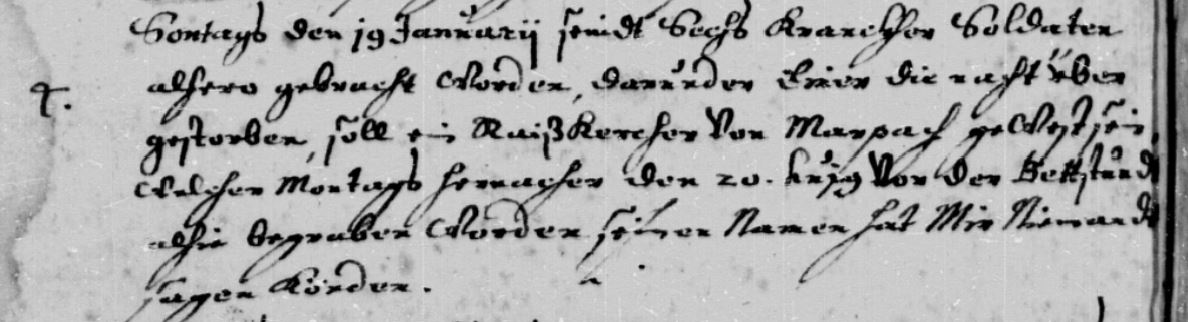 Sontags den 19 Januarij seindt Sechs Krancher Soldaten
alhero gebracht worden, darunder Einer die nacht über
4. gestorben, soll ein Raißkercher von Marpach gewest sein,
welcher Montags hernacher den 20. hujg vor der Bettstund
alhie begraben worden seinen Namen hat Mir Niemandt
sagen könden.